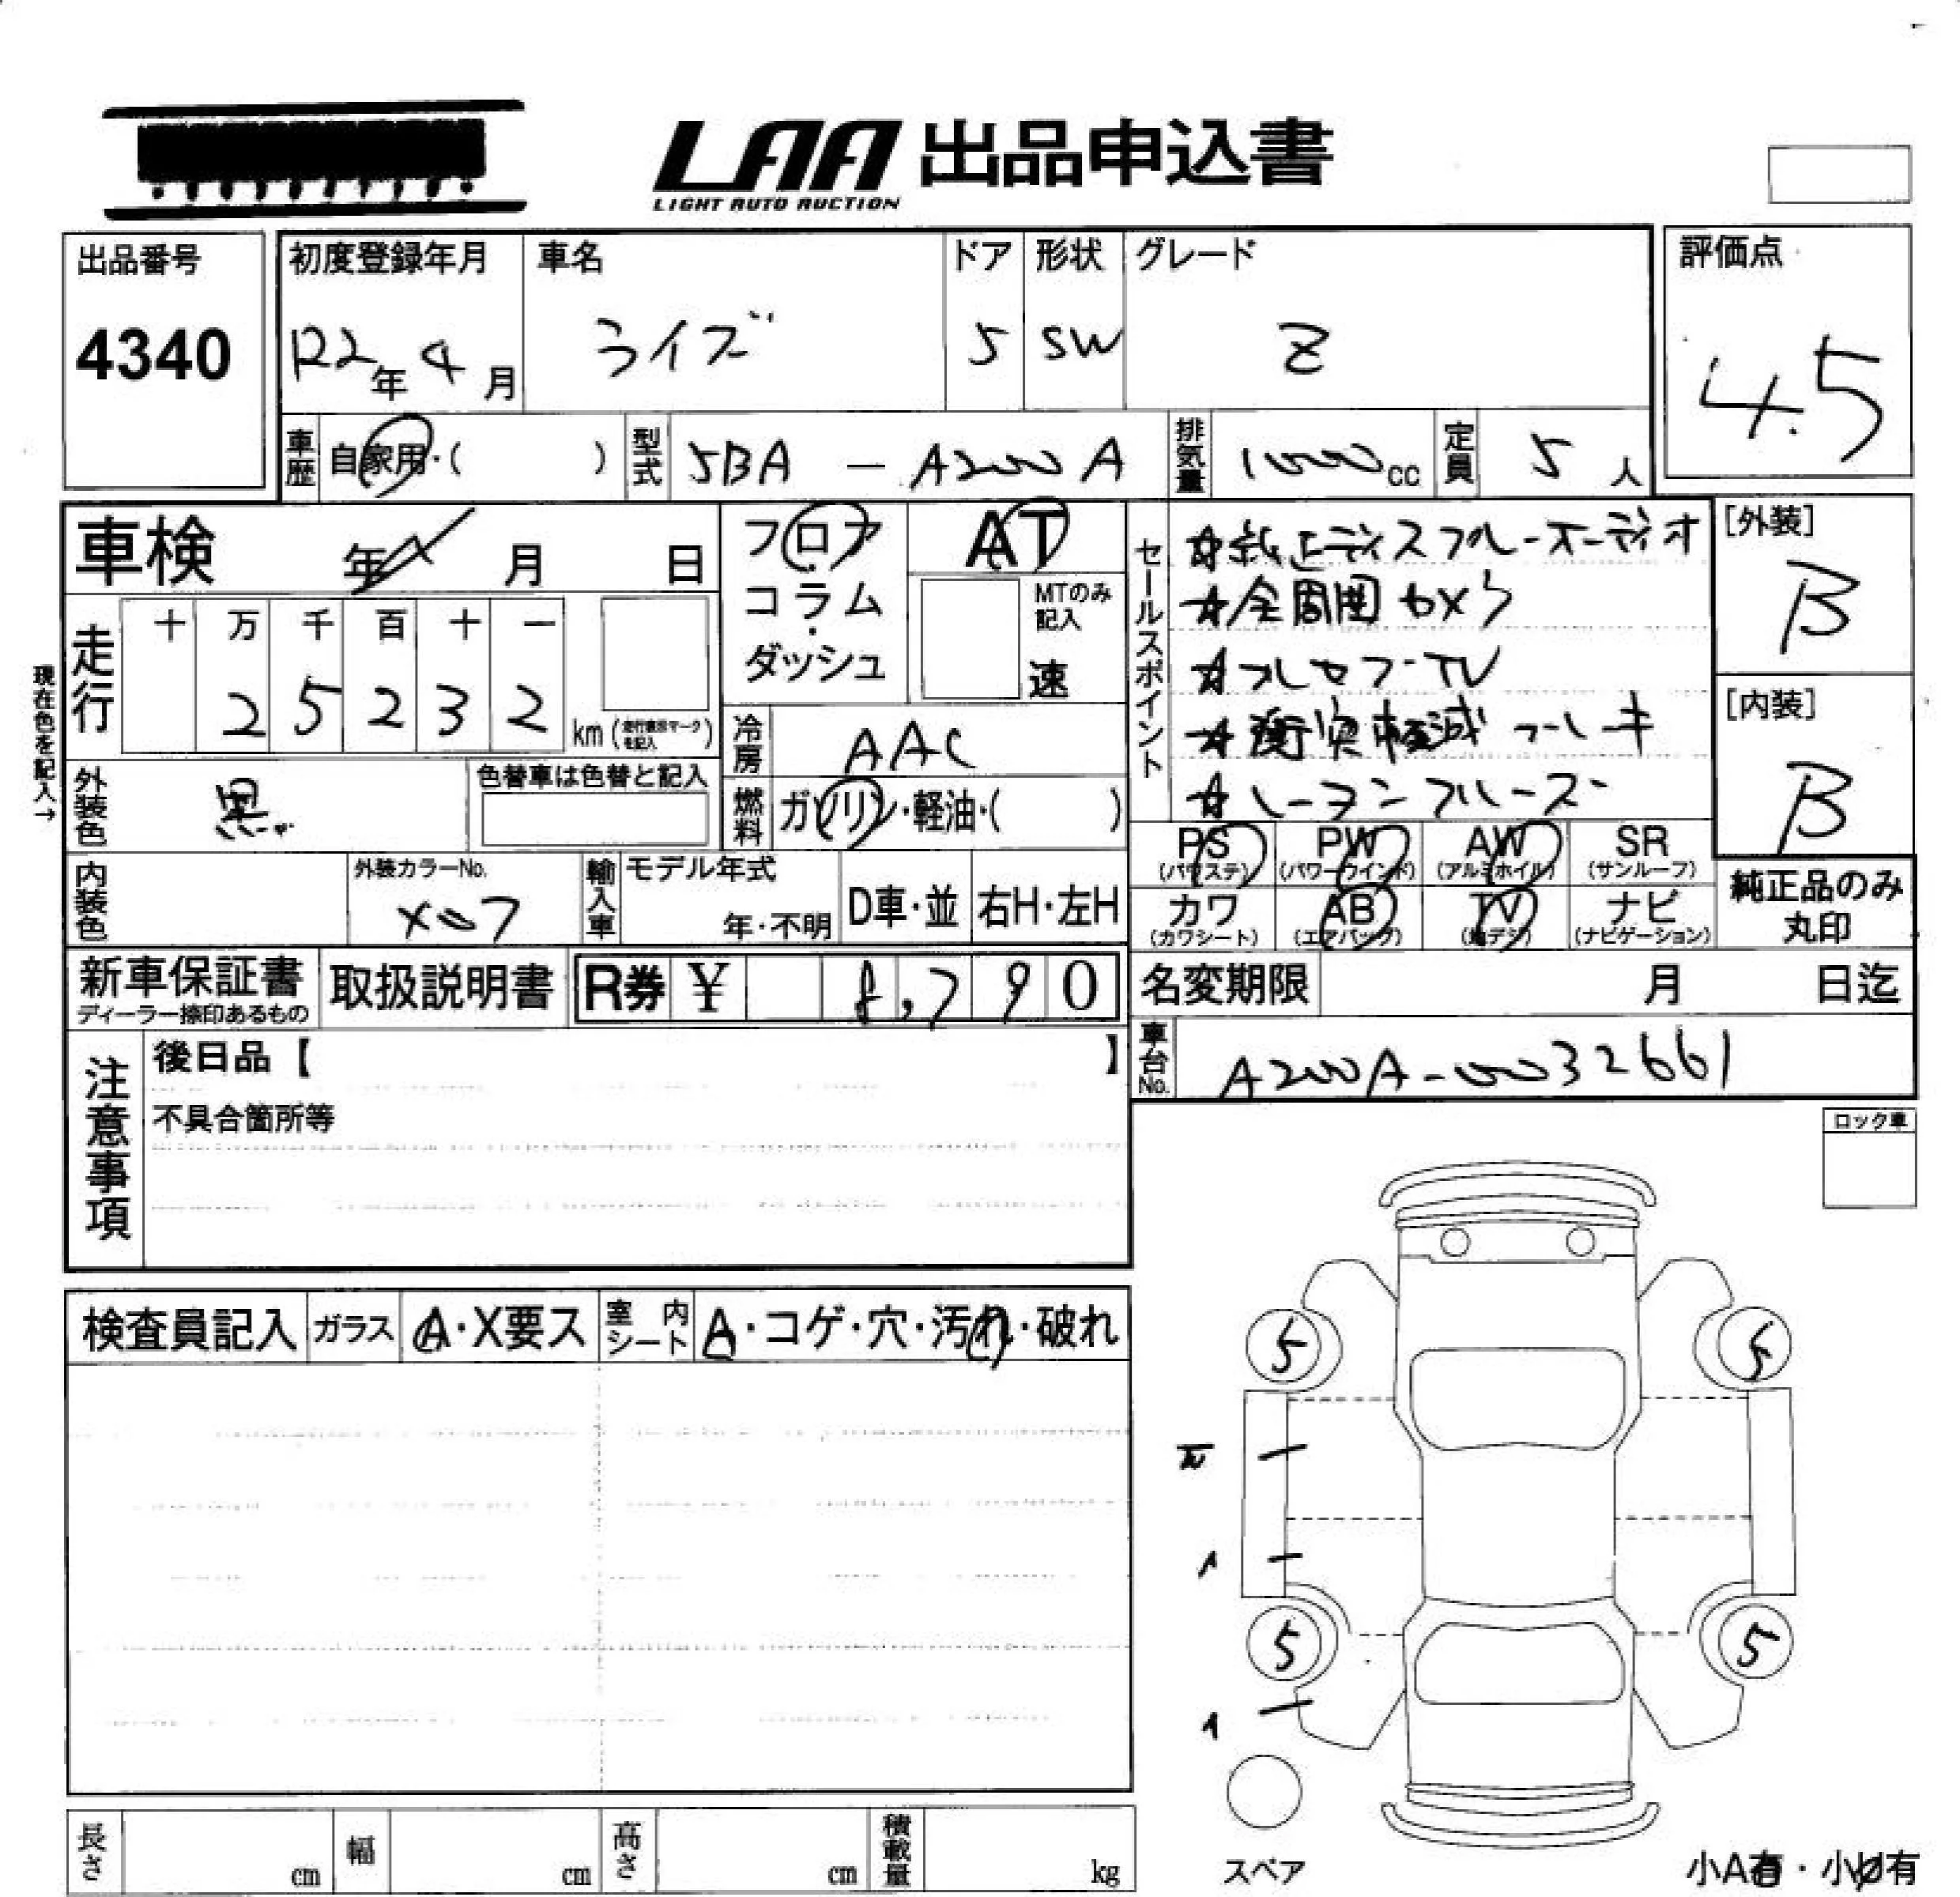 LAA 出品申込書
LIGHT AUTO AUCTION
出品番号
4340
初度登録年月 車名 ドア 形状 グレード
R2年 4月 ライズ 5 SW Z
評価点
4.5
車歴 自家用・( ) 型式 5BA - A200A 排気量 1000cc 定員 5人
車検 年 月 日
フロア・コラム・ダッシュ
AT
MTのみ記入
速
セールスポイント
☆純正ディスプレーオーディオ
☆全周囲カメラ
☆フルセグTV
☆衝突軽減ブレーキ
[外装]
B
[内装]
B
現在色を記入→
走行 十 万 千 百 十 一
2 5 2 3 2 km
冷房 AAC
外装色 黒
色替車は色替と記入
燃料 ガソリン・軽油・( )
PS (パワステ) PW (パワーウインド) AW (アルミホイル) SR (サンルーフ)
カワ (カワシート) AB (エアバッグ) TV (地デジ) ナビ (ナビゲーション)
純正品のみ丸印
内装色
外装カラーNo.
X07
輸入車 モデル年式 年・不明 D車・並 右H・左H
新車保証書
ディーラー捺印あるもの
取扱説明書
R券 ¥ 8,790
名変期限 月 日迄
車台No. A200A-0032661
注意事項
後日品【 】
不具合箇所等
ロック車
検査員記入 ガラス A・X要ス 室内シート A・コゲ・穴・汚れ・破れ
5 5
5 5
長さ cm 幅 cm 高さ cm 積載量 kg
スペア
小A有・小U有